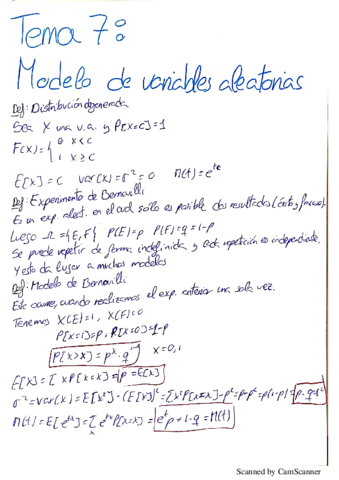 Tema 7:
Modelo de variables aleatorias
Def: Distribución degenerada
Sea X una v.a. y P[X=c]=1
F(x)={ 0 x<c
1 x≥c
E[X]=c var(x)=σ²=0 M(t)=e^{tc}
Def: Experimento de Bernouilli
Es un exp. aleat. en el cual solo es posible dos resultados (éxito y fracaso).
Luego Ω={E,F} P(E)=p P(F)=q=1-p
Se puede repetir de forma indefinida y cada repetición es independiente.
Y esto da lugar a muchos modelos
Def: Modelo de Bernouilli
Este ocurre, cuando realizamos el exp. anterior una sola vez.
Tenemos X(E)=1, X(F)=0
P[X=1]=p, P[X=0]=1-p
P[X=x]=p^x·q^{1-x} x=0,1
E[X]=Σ x P[X=x]=p=E[X]
σ²=var(x)=E[x²]-(E[x])²=Σx²P[X=x]-p²=p-p²=p(1-p)=p·q=σ²
M(t)=E[e^{tx}]=Σ_x e^{tx}P[X=x]=e^t p+1·q=M(t)
Scanned by CamScanner